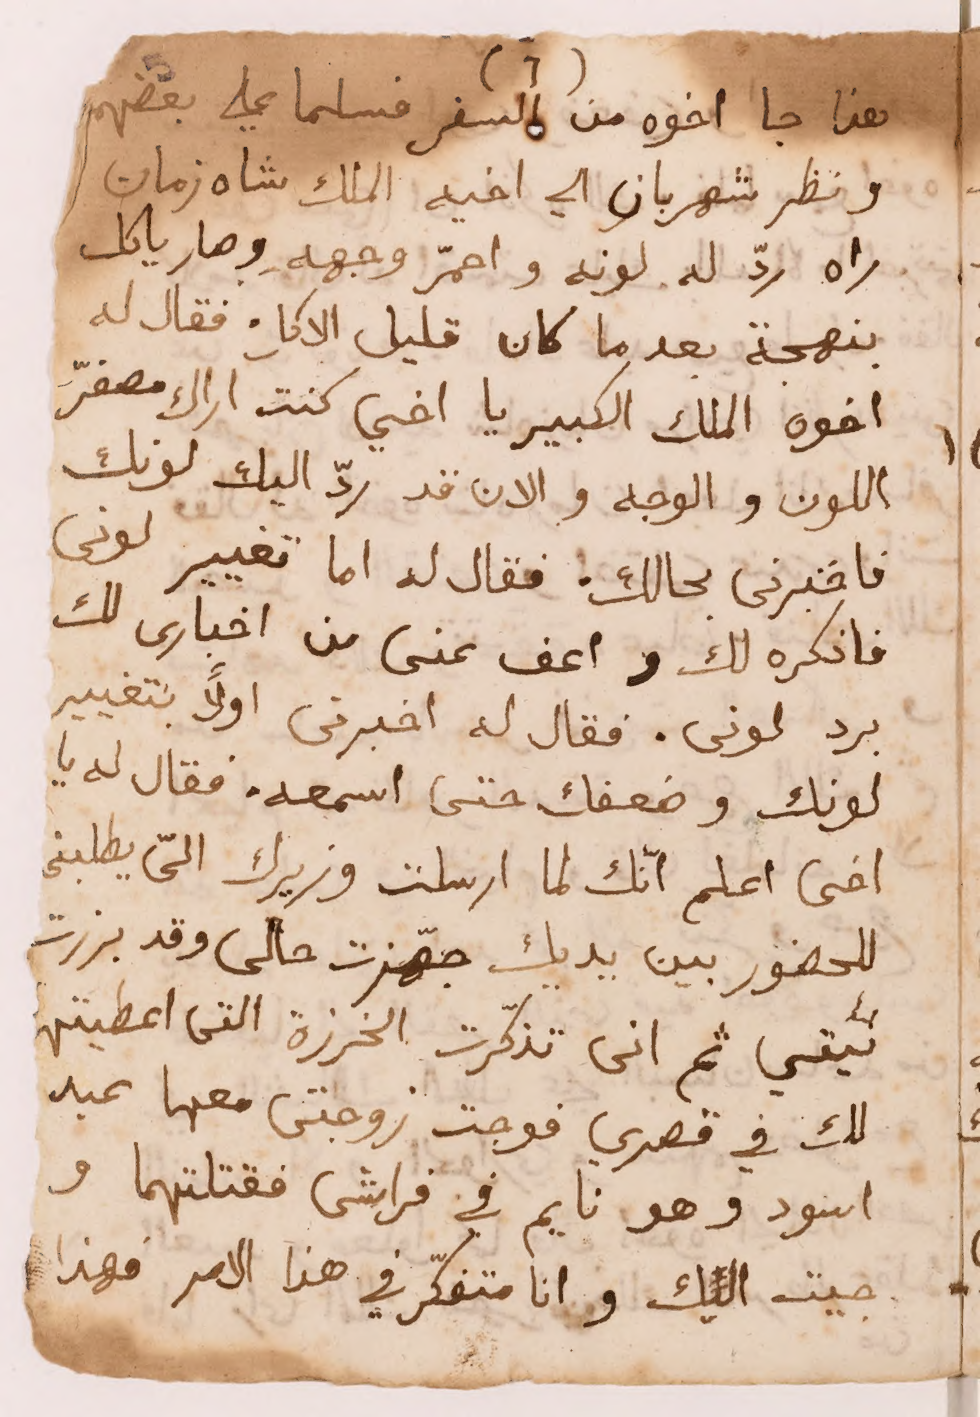 (٦)
هذا جا اخوه من السفر فسلما على بعضهم
و نظر شهربان الي اخيه الملك شاه زمان
راه ردّ له لونه و احمرّ وجهه وصار ياكل
بنهجة بعد ما كان قليل الاكل. فقال له
اخوه الملك الكبير يا اخي كنت اراك مصفرّ
اللون و الوجه و الان قد ردّ اليك لونك
فاخبرنى بحالك. فقال له اما تغيير لونى
فاذكره لك و اعف عنى من اخبارى لك
برد لونى. فقال له اخبرنى اولاً بتغيير
لونك و ضعفك حتى اسمعه. فقال له يا
اخى اعلم انّك لما ارسلت وزيرك اليّ يطلبنى
للحضور بين يديك جهّزت حالى وقد برزت
ثم انى تذكّرت الخرزة التى اعطيتها
لك في قصري فوجت زوجتى معها عبد
اسود و هو نايم في فراشى فقتلتهما و
جيت اليك و انا متفكّر في هذا الامر فهذا